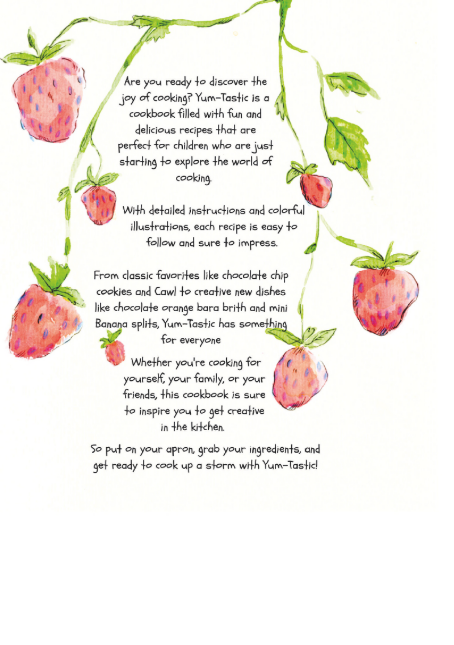 Are you ready to discover the
joy of cooking? Yum-Tastic is a
cookbook filled with fun and
delicious recipes that are
perfect for children who are just
starting to explore the world of
cooking.
With detailed instructions and colorful
illustrations, each recipe is easy to
follow and sure to impress.
From classic favorites like chocolate chip
cookies and Cawl to creative new dishes
like chocolate orange bara brith and mini
Banana splits, Yum-Tastic has something
for everyone
Whether you're cooking for
yourself, your family, or your
friends, this cookbook is sure
to inspire you to get creative
in the kitchen.
So put on your apron, grab your ingredients, and
get ready to cook up a storm with Yum-Tastic!